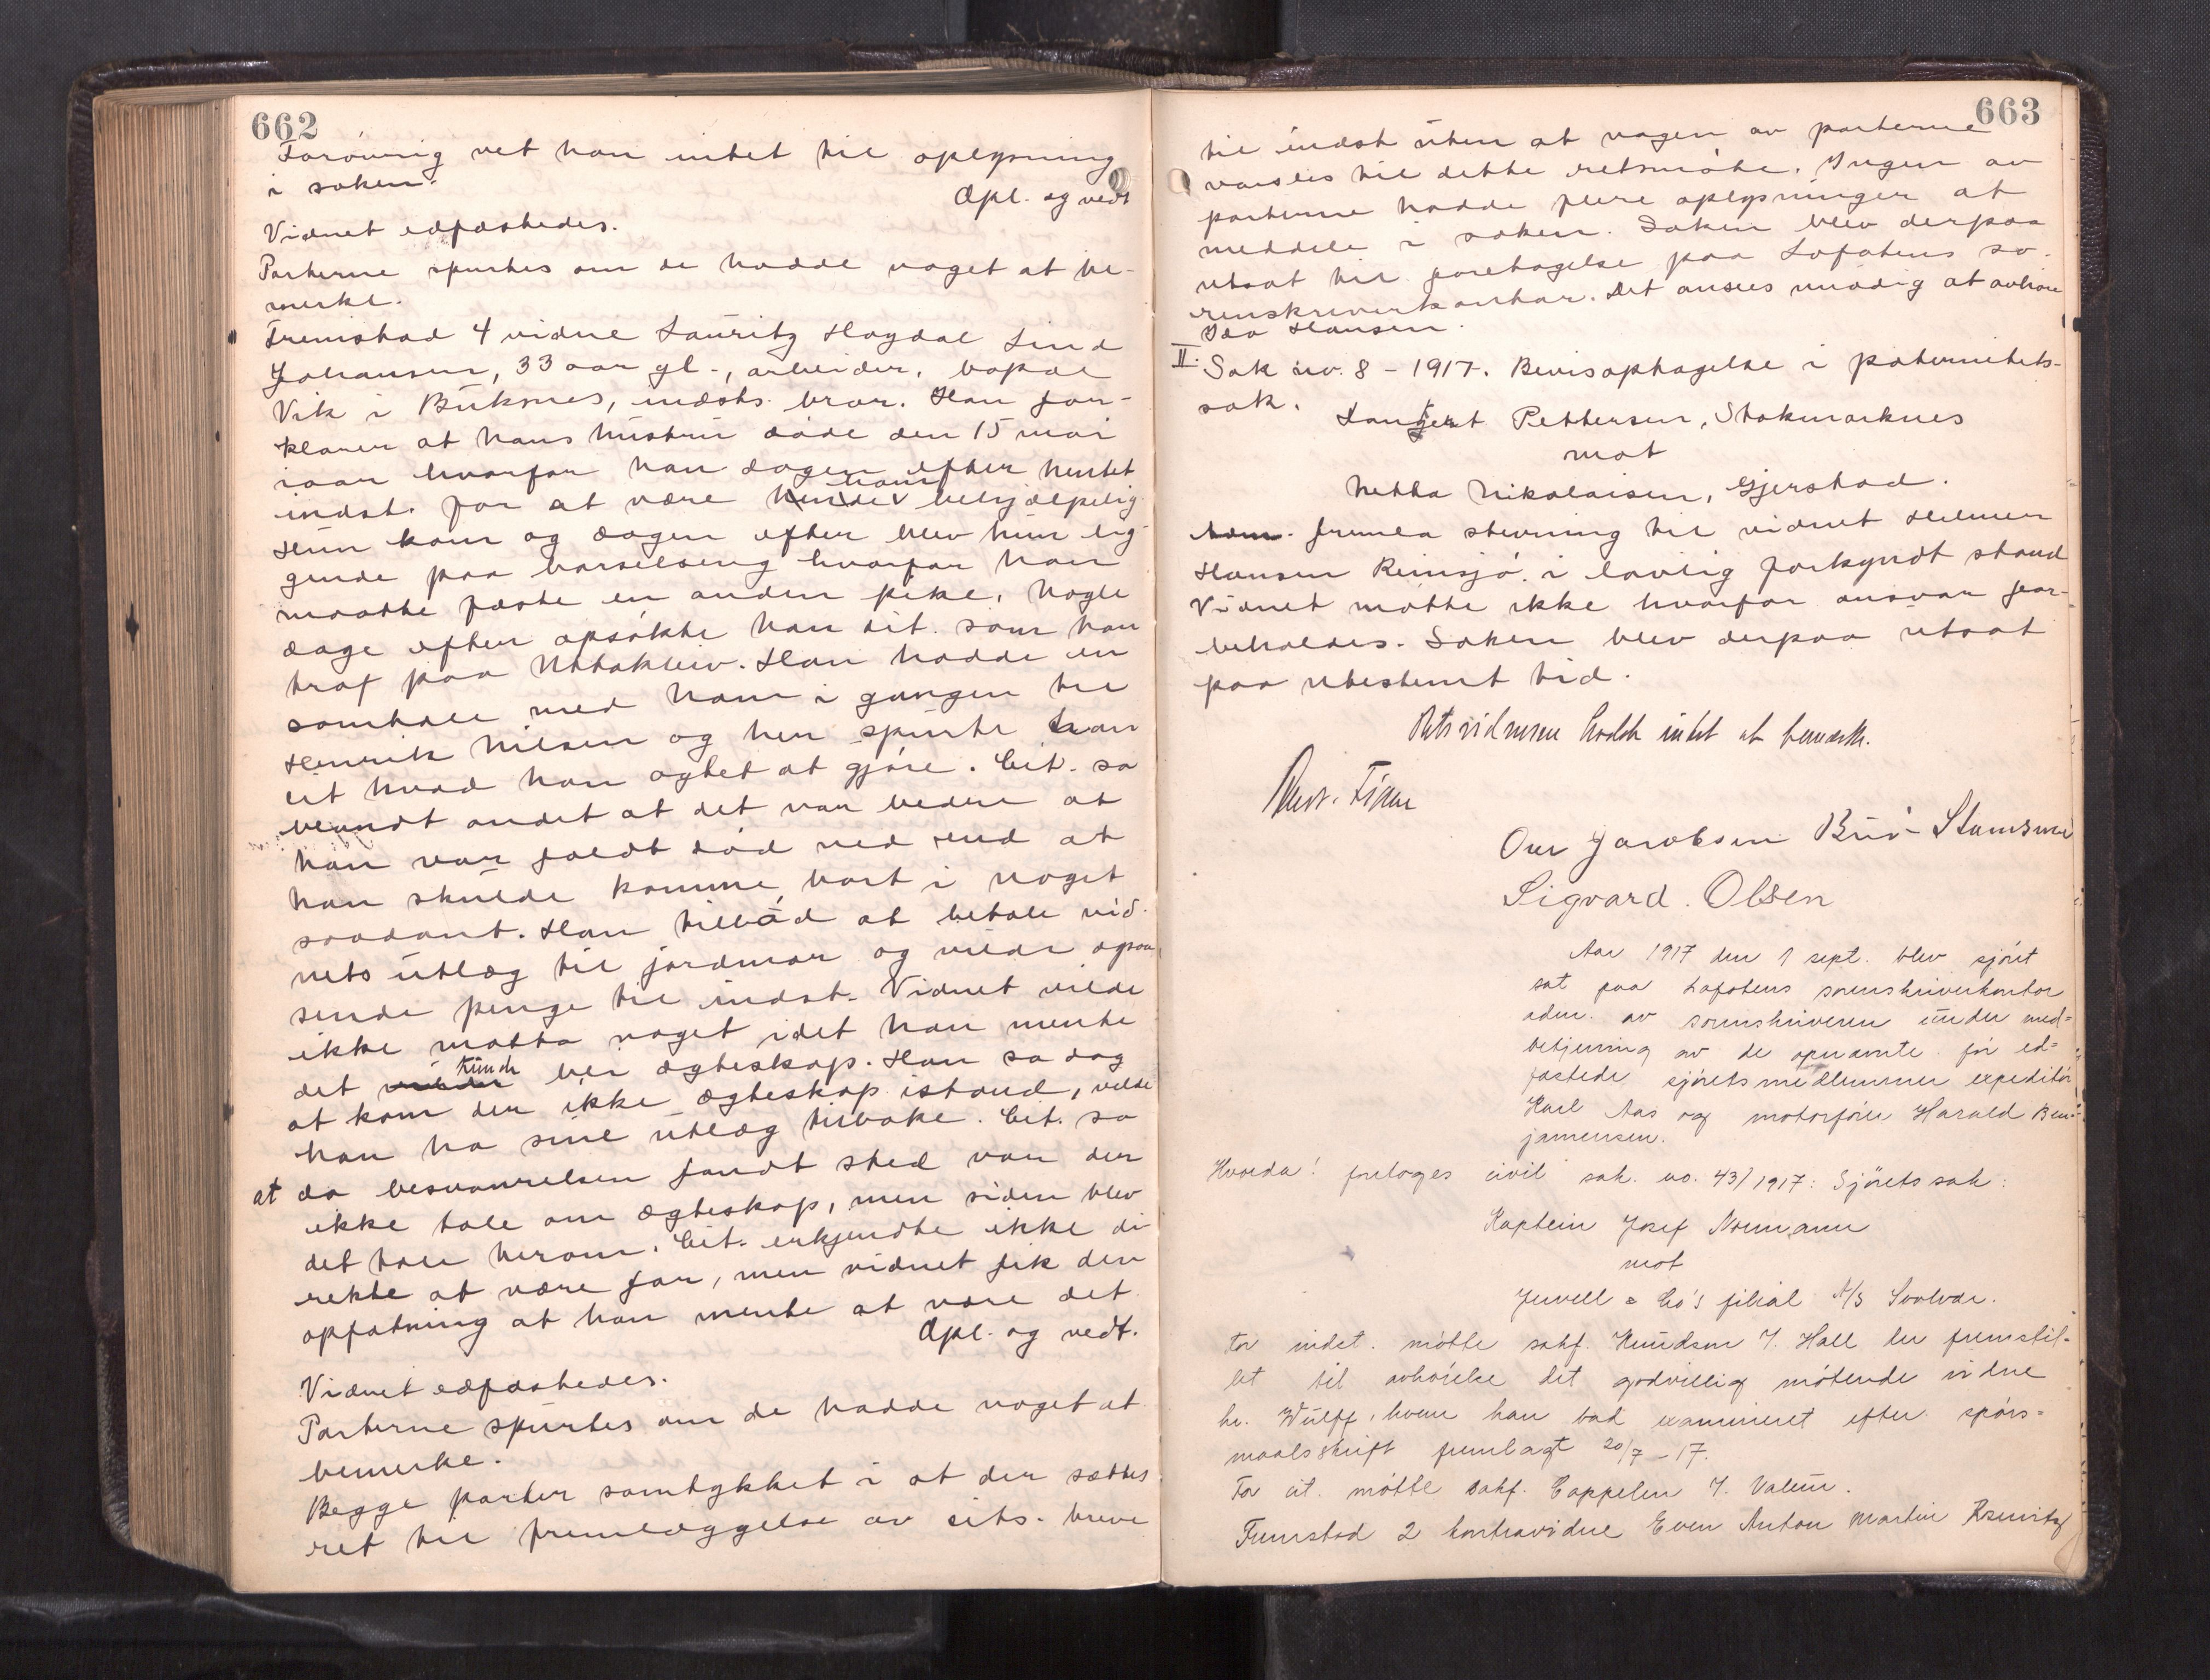 662
Forøvrig vet han intet til oplysning
i saken.
Opl. og vedt
Vidnet edfæstedes.
Parterne spurtes om de hadde noget at be-
merke.
Fremstod 4 vidne Lauritz Hagdal Lind
Johansen, 33 aar gl., arbeider, bopæl
Vik i Buksnes, indsts. bror. Han for-
klarer at hans hustru døde den 15 mai
iaar hvorfor han dagen efter hentet
indst. for at være ham behjælpelig
Hun kom og dagen efter blev hun lig-
gende paa barselseng hvorfor han
maatte fæste en anden pike. Nogle
dage efter opsøkte han cit. som han
traf paa Uttakleiv. Han hadde en
samtale med ham i gangen til
Henrik Nilsen og her spurte han
cit hvad han agtet at gjøre. Cit. sa
blandt andet at det var bedre at
han var faldt død ned end at
han skulde komme bort i noget
saadant. Han tilbød at betale vid-
nets utlæg til jordmor og vilde ogsaa
sende penge til indst. Vidnet vilde
ikke motta noget idet han mente
det kunde bli ægteskap. Han sa dog
at kom der ikke ægteskap istand, vilde
han ha sine utlæg tilbake. Cit. sa
at da besvangrelsen fandt sted var der
ikke tale om ægteskap, men siden blev
det tale herom. Cit. erkjendte ikke di-
rekte at være far, men vidnet fik den
opfatning at han mente at være det.
Opl. og vedt.
Vidnet edfæstedes.
Parterne spurtes om de hadde noget at
bemerke.
Begge parter samtykket i at der sættes
ret til fremlæggelse av cits. breve
663
til indst uten at nogen av parterne
varsles til dette retsmøte. Ingen av
parterne hadde flere oplysninger at
meddele i saken. Saken blev derpaa
utsat til foretagelse paa Lofotens so-
renskriverkontor. Det ansees unødig at avhøre
Ida Hansen.
II. Sak nr. 8 - 1917. Bevisoptagelse i paternitets-
sak.
Pettersen, Stokmarknes
mot
Netta Nikolaisen, Gjerstad.
fremla stevning til vidnet Helmer
Hansen Rinsjø i lovlig forkyndt stand
Vidnet møtte ikke hvorfor ansvar for-
beholdes. Saken blev derpaa utsat
paa ubestemt tid.
Retsvidnerne hadde intet at bemærke.
Ove Jacobsen Buø Stamsund
Sigvard. Olsen
Aar 1917 den 1 sept. blev sjøret
sat paa Lofotens sorenskriverkontor
adm. av sorenskriveren under med-
betjening av de opnævnte før ed-
fæstede sjøretsmedlemmer expeditør
Karl Aas og motorfører Harald Ben-
jamensen.
Hvorda! foretoges civil sak. no. 43/1917: Sjøretssak:
Kaptein Josef Normann
mot
Juvell & Co's filial A/S Svolvær.
For indst. møtte sakf. Knudsen f. Hall lu fremstil-
let til avhørelse det godvillig møtende vidne
hr. Wulff, hvem han bad examineret efter spørs-
maalsskrift fremlagt 20/7 - 17.
For cit. møtte sakf. Cappelen f. Valeur.
Fremstod 2 kontravidne Even Anton Martin